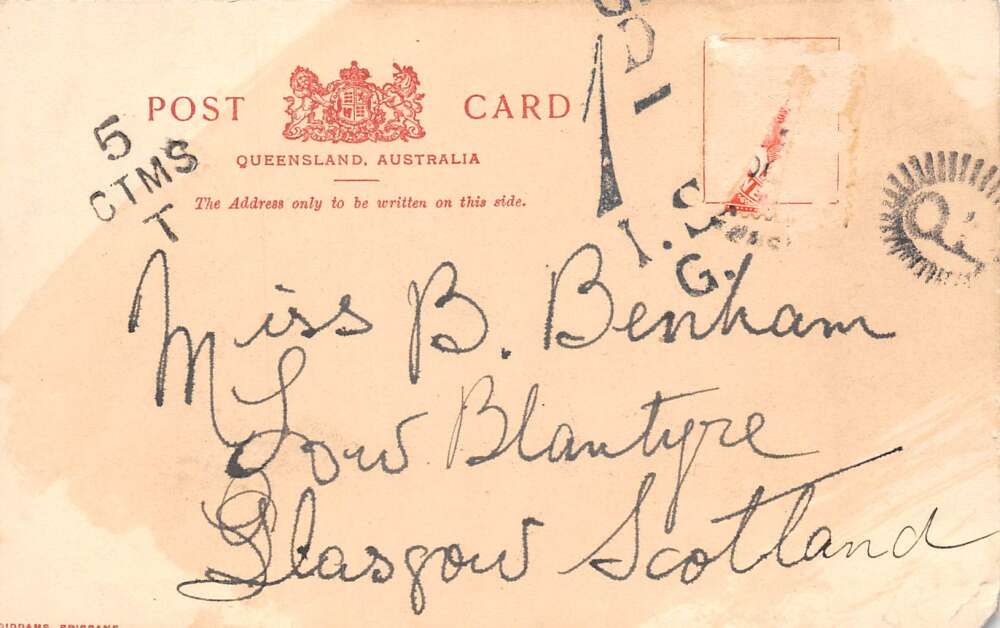 POST CARD
QUEENSLAND, AUSTRALIA
The Address only to be written on this side.
5
CTMS
T
1D
I.S.
G.
Miss B. Benham
Low Blantyre
Glasgow Scotland
BRISBANE